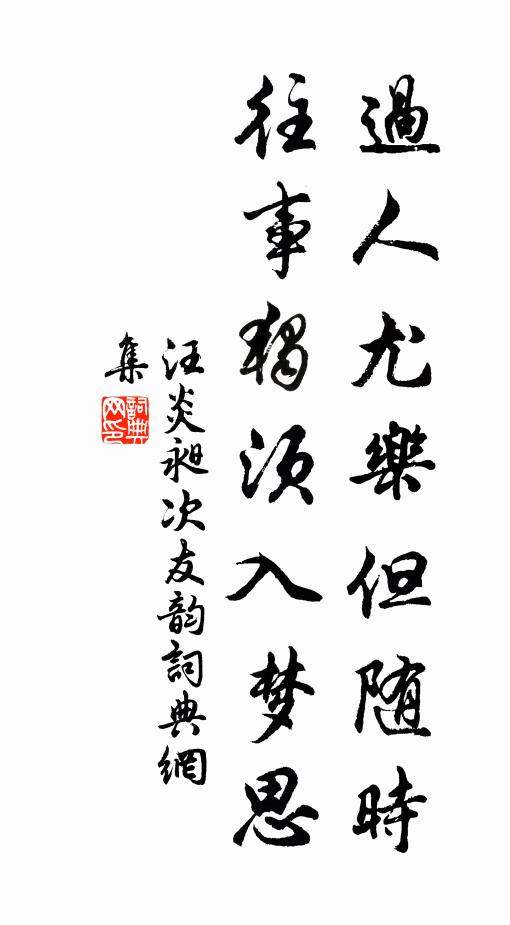 過人尤樂但随時
往事獨須入梦思
汪炎昶次友韵詞典網
集
詞典網印